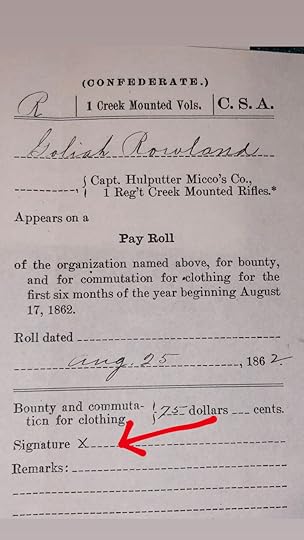 (CONFEDERATE.)
R | 1 Creek Mounted Vols. | C. S. A.
Goliah Rowland
Capt. Hulputter Micco's Co.,
1 Reg't Creek Mounted Rifles.*
Appears on a
Pay Roll
of the organization named above, for bounty,
and for commutation for clothing for the
first six months of the year beginning August
17, 1862.
Roll dated
Aug. 25, 1862.
Bounty and commuta-
tion for clothing 75 dollars cents.
Signature X
Remarks: